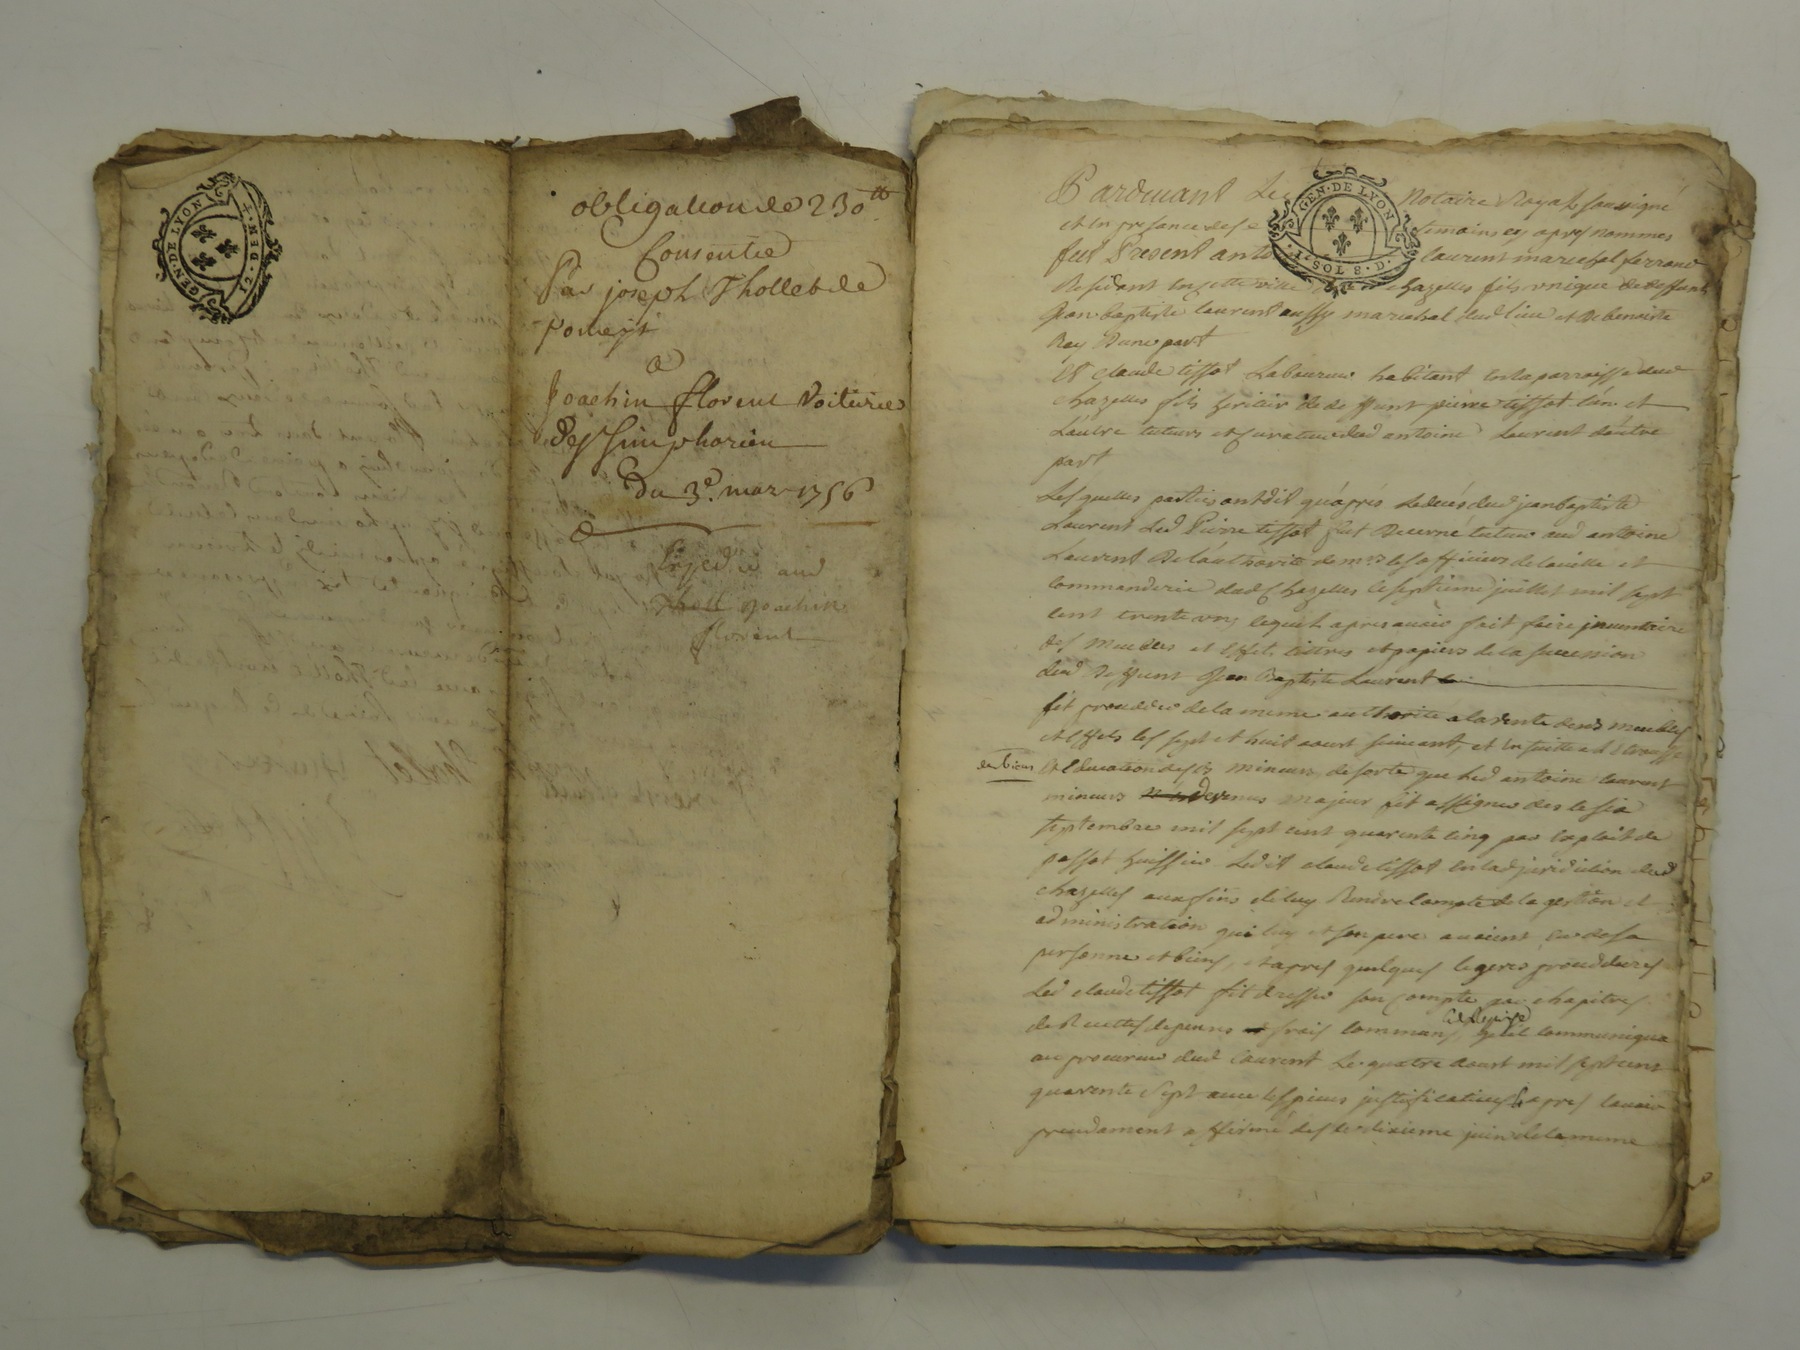 GEN·DE·LYON
MED·DEN·4·
obligation de 230tt
Consentie
Par joseph Thollet de
pomeys
a
Joachin florent Voiturier
De St Simphorien
Du 3e. mars 1756
Expedié aud
Tholl joachin
florent
GEN·DE LYON
1·SOL 8·D·
Pardevant Le Notaire Royal soussigné
et en presance des temoins cy apres nommes
fut Present anto laurent marechal ferrand
Residant en cette ville de chazelles fils unique de deffunt
Jean baptiste laurent aussy marechal dud lieu et de benoiste
Rey D'une part
Et claude tissot Laboureur habitant en la parroisse dud
chazelles fils heritier de deffunt pierre tissot l'un et
L'autre tuteurs et curateur dud antoine Laurent d'autre
part
Lesquelles parties ont dit qu'aprés le decés dud jean baptiste
Laurent Led Pierre tissot fut Decerné tuteur aud antoine
Laurent De l'authorité de mrs les officiers de la ville et
commanderie dud chazelles le septieme juillet mil sept
cent trente un lequel apres avoir fait faire jnventaire
des meubles et effets tittres et papiers de la succession
dud Deffunt Jean Baptiste Laurent
fit proceder de la meme authorité a la vente desd meubles
et effets les sept et huit aoust suivant, et en suitte a l'etrousse
des biens
Et Education desd mineurs, de sorte que Led antoine laurent
mineur devenus majeur fit assigner des le six
septembre mil sept cent quarente cinq par exploit de
passot huissier Ledit claude tissot en lad juridiction dud
chazelles aux fins de luy Rendre compte de la gestion et
administration que luy et son pere avoient eu de sa
personne et biens, et apres quelques legeres proceddures
Led claude tissot fit dresser son compte par chapitres
de Recettes depences frais communs et Reprise
qu'il communiqua
au procureur dud laurent Le quatre aoust mil sept cent
quarente sept avec les pieces justificatives apres l'avoir
prendament affirmé des le dixieme juin de la meme